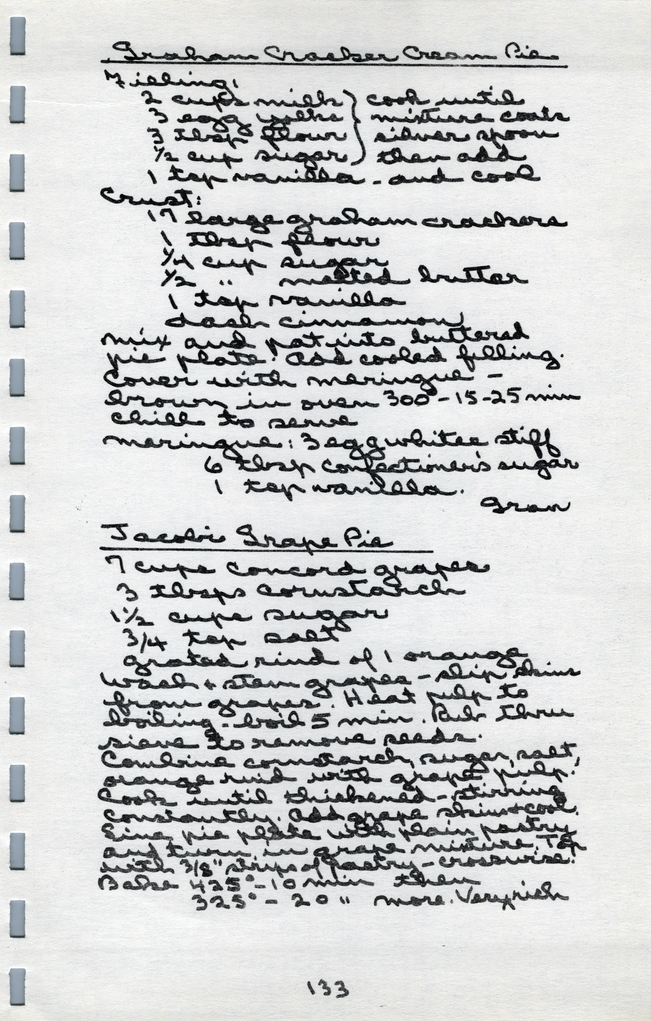 Graham Cracker Cream Pie
Filling:
2 cups milk } cook until
3 egg yolks } mixture coats
3 tbsp flour } silver spoon
1/2 cup sugar } then add
1 tsp vanilla - and cool
Crust:
17 large graham crackers
1 tbsp flour
1/4 cup sugar
1/2 " melted butter
1 tsp vanilla
dash cinnamon
mix and pat into buttered
pie plate. Add cooled filling.
Cover with meringue -
brown in oven 300° - 15-25 min
chill to serve
meringue: 3 egg whites stiff
6 tbsp confectioner's sugar
1 tsp vanilla.
Gran
Jacob's Grape Pie
7 cups concord grapes
3 tbsps cornstarch
1 1/2 cups sugar
3/4 tsp salt
grated rind of 1 orange
Wash + stem grapes - slip skins
from grapes. Heat pulp to
boiling. boil 5 min. Rub thru
sieve to remove seeds.
Combine cornstarch, sugar, salt,
orange rind with grape pulp.
Cook until thickened - stirring
constantly. Add grape skins + cool.
Line pie plate with plain pastry
and turn in grape mixture. Top
with 3/8" strips of pastry - crosswise.
Bake 425° - 10 min then
325° - 20 " more. Very rich
133